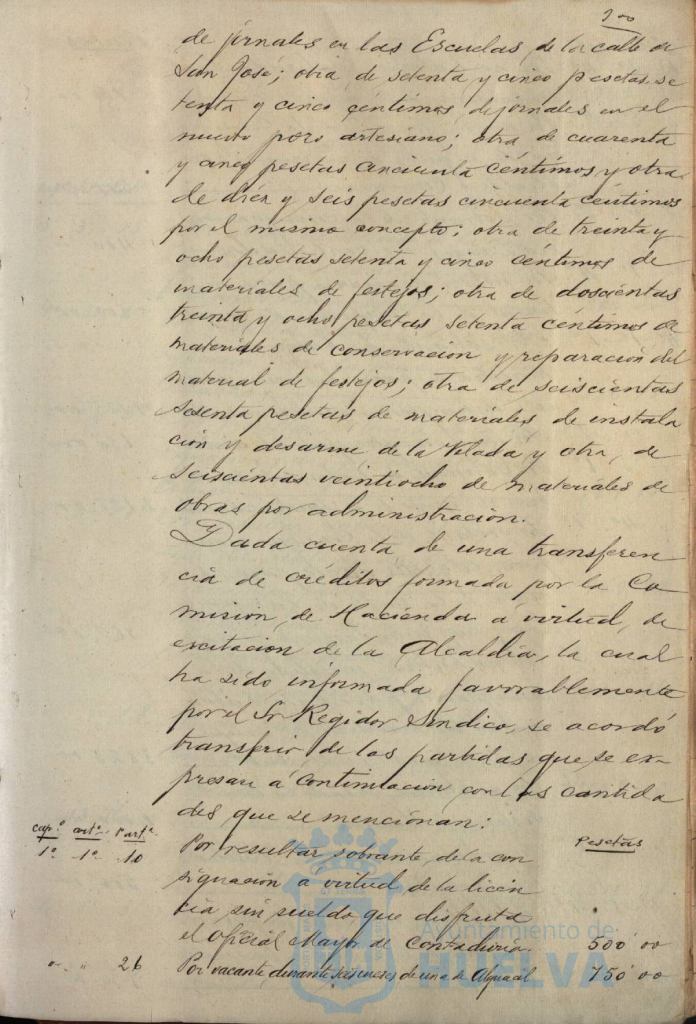 200
de jornales en las Escuelas de la calle de
San José; otra de setenta y cinco pesetas se
tenta y cinco céntimos de jornales en el
nuevo pozo artesiano; otra de cuarenta
y cinco pesetas cincuenta céntimos y otra
de diez y seis pesetas cincuenta céntimos
por el mismo concepto; otra de treinta y
ocho pesetas setenta y cinco céntimos de
materiales de festejos; otra de doscientas
treinta y ocho pesetas setenta céntimos de
materiales de conservación y reparación del
material de festejos; otra de seiscientas
sesenta pesetas de materiales de instala
ción y desarme de la Velada y otra, de
seiscientas veintiocho de materiales de
obras por administración.
Dada cuenta de una transferen
cia de créditos formada por la Co
misión de Hacienda á virtud, de
excitación de la Alcaldía, la cual
ha sido informada favorablemente
por el Sr Regidor Síndico, se acordó
transferir de las partidas que se ex-
presan á continuación con las cantida
des que se mencionan:
cap.º artº. Partª. Pesetas
1º 1º 10 Por resultar sobrante de la con
signación á virtud de la licen
cia sin sueldo que disfruta
el Oficial Mayor de Contaduría 500'00
" " 26 Por vacante durante seis meses de una de Alguacil 750'00
Ayuntamiento de
HUELVA